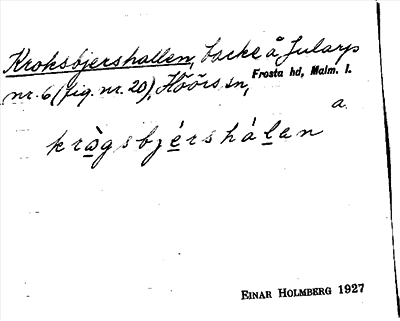 Kroksbjershallen, backe å Jularp
nr. 6 (fig. nr. 20), Höörs sn, Frosta hd, Malm. l.
a.
kràgsbjérshálan
EINAR HOLMBERG 1927